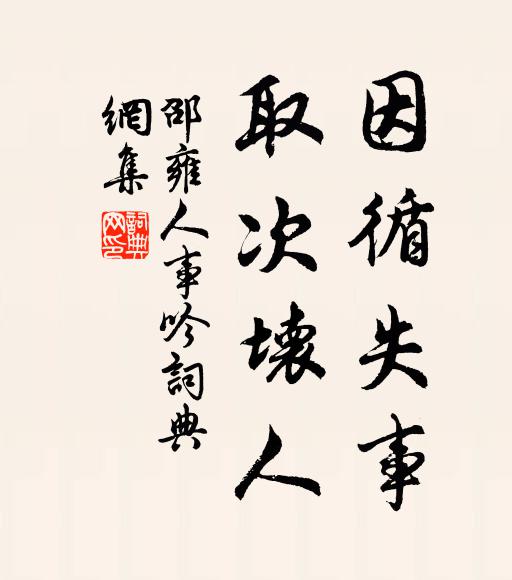 因循失事
取次壞人
邵雍人事吟詞典
網集
詞典網印